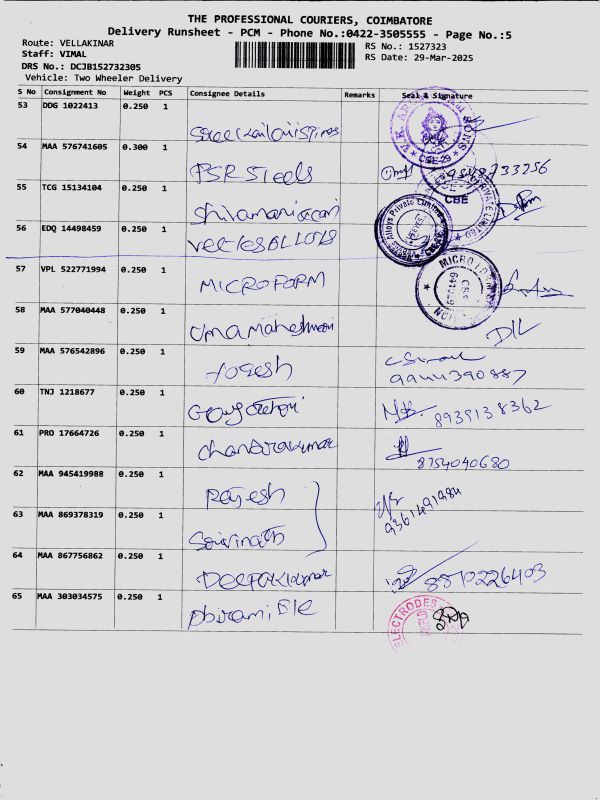 THE PROFESSIONAL COURIERS, COIMBATORE
Delivery Runsheet - PCM - Phone No.:0422-3505555 - Page No.:5
Route: VELLAKINAR
RS No.: 1527323
Staff: VIMAL
RS Date: 29-Mar-2025
DRS No.: DCJB152732305
Vehicle: Two Wheeler Delivery
S No Consignment No Weight PCS Consignee Details Remarks Seal & Signature
53 DDG 1022413 0.250 1
54 MAA 576741605 0.300 1 PSR Steels
55 TCG 15134104 0.250 1
CBE
56 EDQ 14498459 0.250 1
57 VPL 522771994 0.250 1 MICROFORM
58 MAA 577040448 0.250 1 Umamaheshwari
59 MAA 576542896 0.250 1 Yogesh
60 TNJ 1218677 0.250 1 8939138362
61 PRO 17664726 0.250 1 Chandrakumar 8754040680
62 MAA 945419988 0.250 1 Rajesh 9361491984
63 MAA 869378319 0.250 1 Gowrinath
64 MAA 867756862 0.250 1 Deepakkumar 8870226403
65 MAA 303034575 0.250 1 Abirami Ele
ELECTRODES